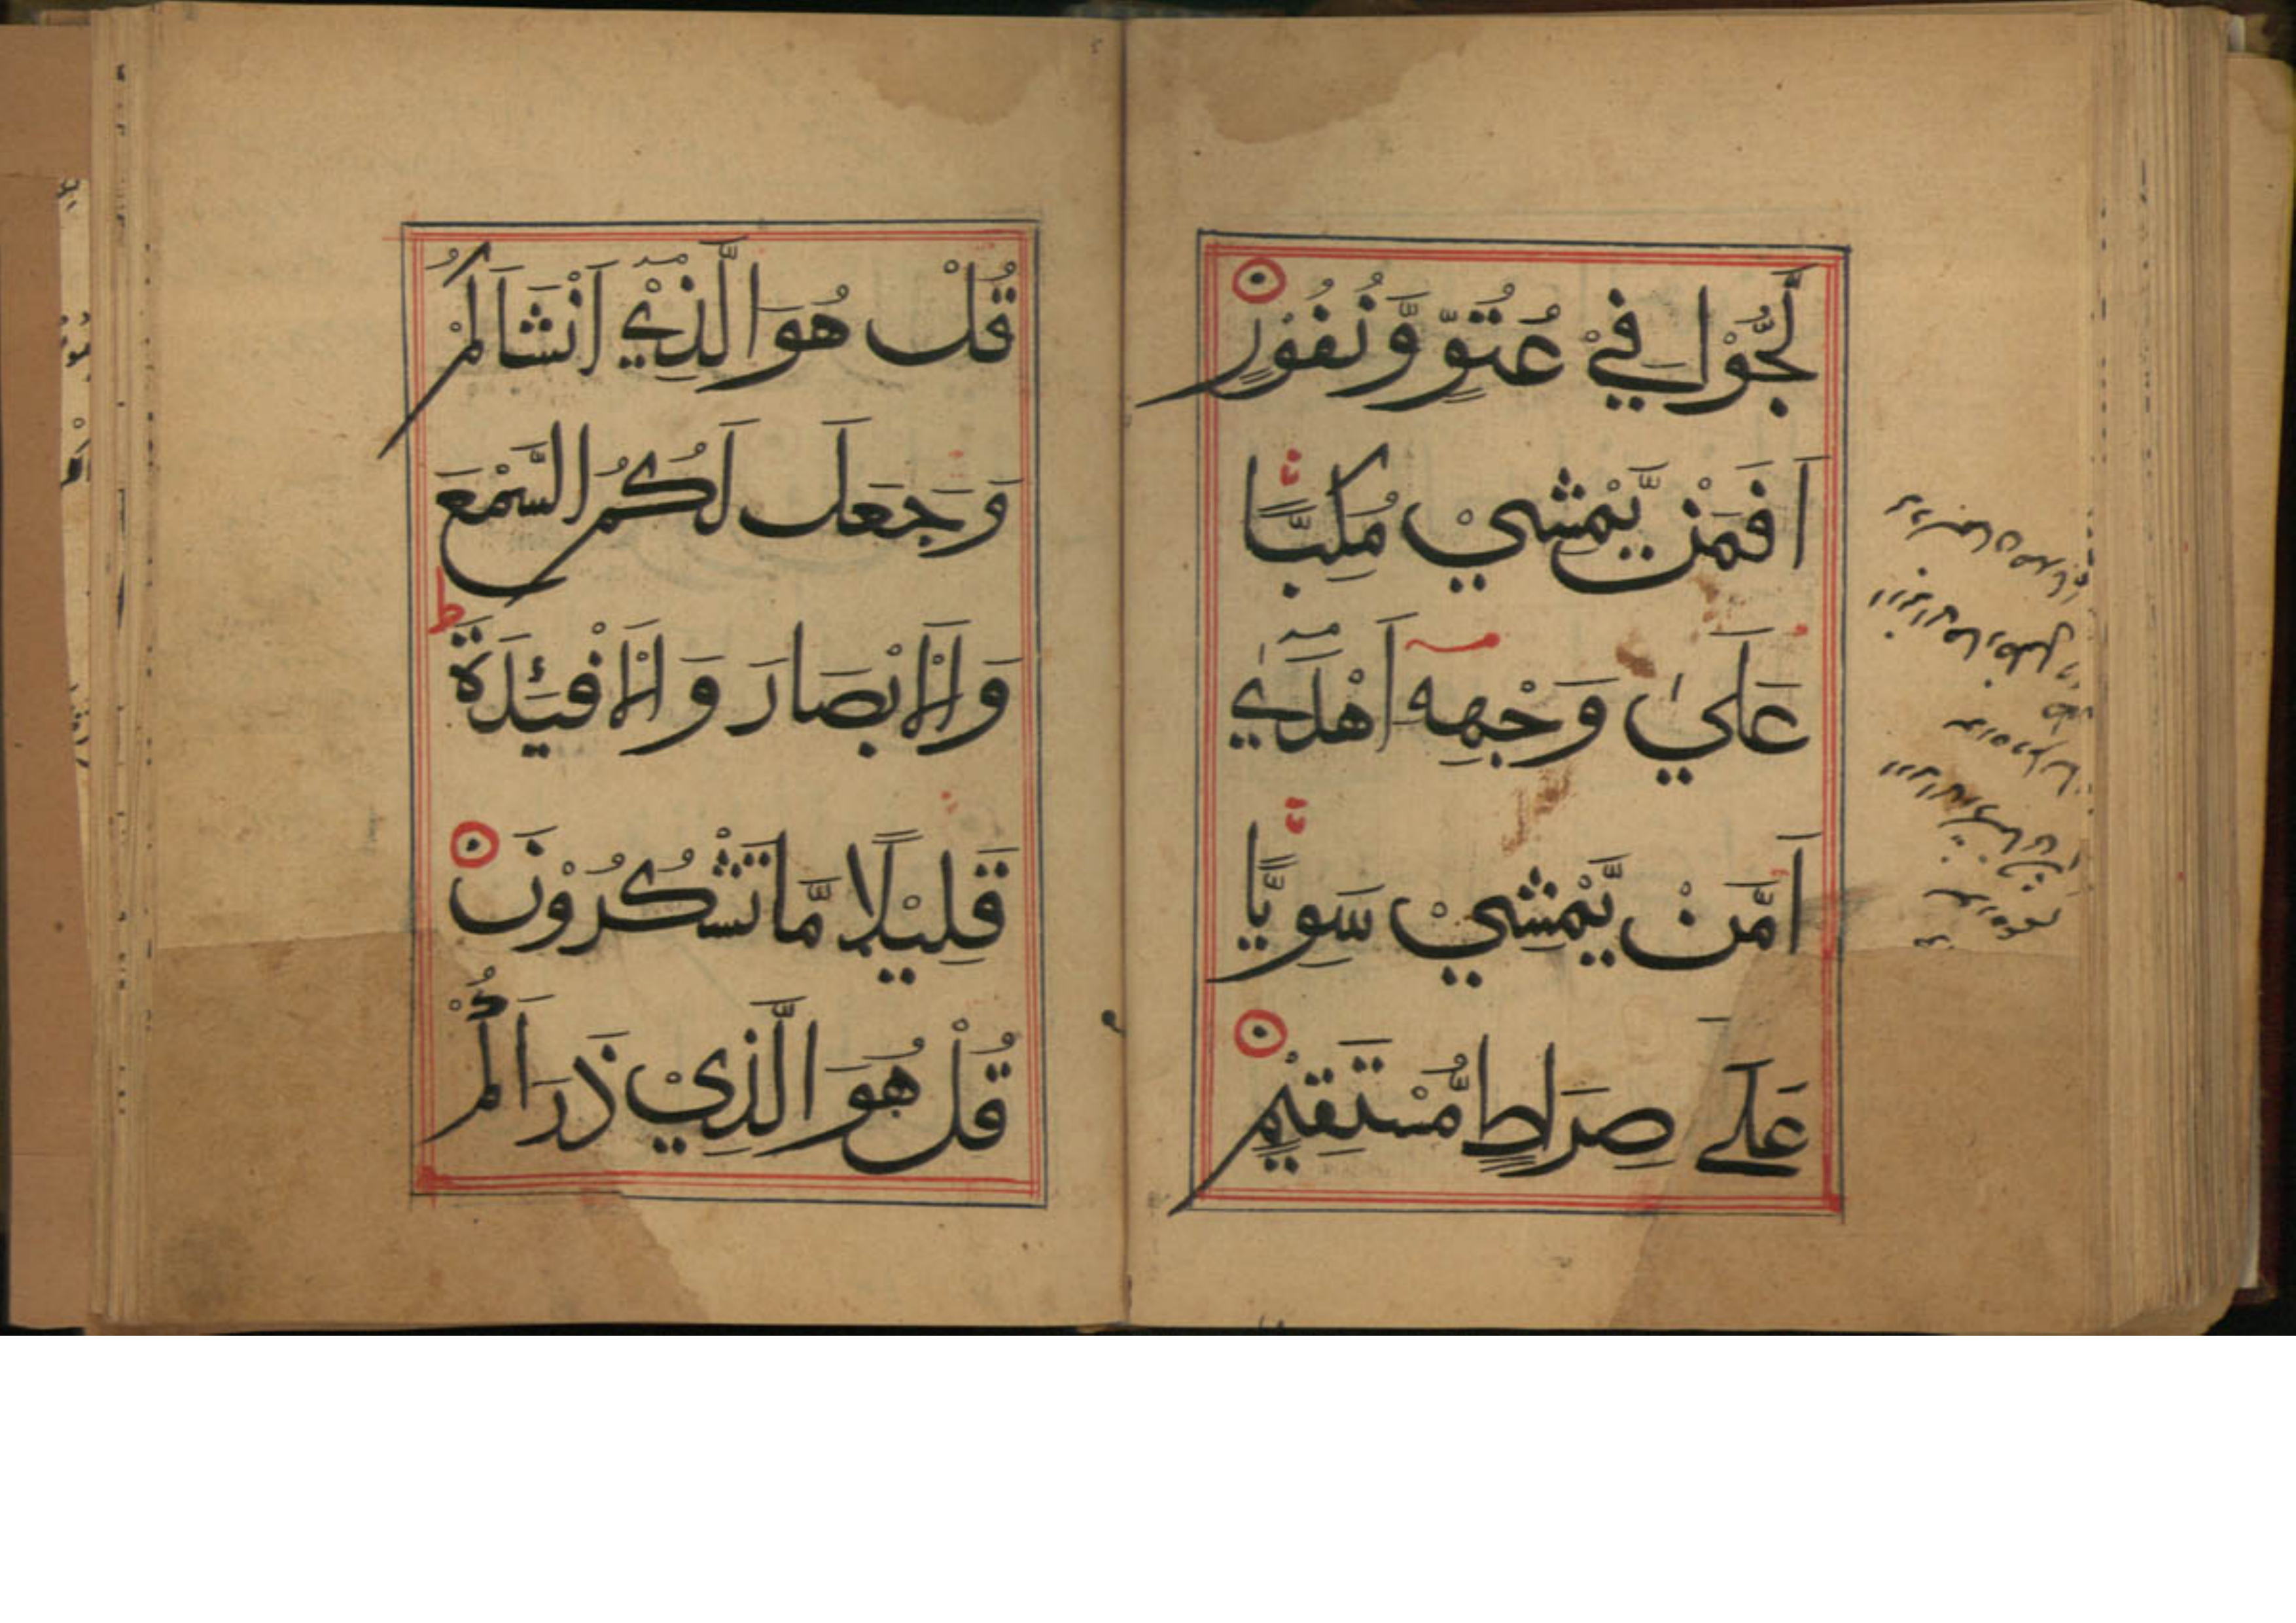 لَّجُّوْا فِيْ عُتُوٍّ وَّنُفُوْرٍ
اَفَمَنْ يَّمْشِيْ مُكِبًّا
عَلٰي وَجْهِهٖ اَهْدٰٓي
اَمَّنْ يَّمْشِيْ سَوِيًّا
عَلَے صِرَاطٍ مُّسْتَقِيْمٍ
قُلْ هُوَ الَّذِيْٓ اَنْشَاَكُمْ
وَجَعَلَ لَكُمُ السَّمْعَ
وَالْاَبْصَارَ وَالْاَفْـِٕيدَةَ ط
قَلِيْلًا مَّا تَشْكُرُوْنَ
قُلْ هُوَ الَّذِيْ ذَرَاَكُمْ